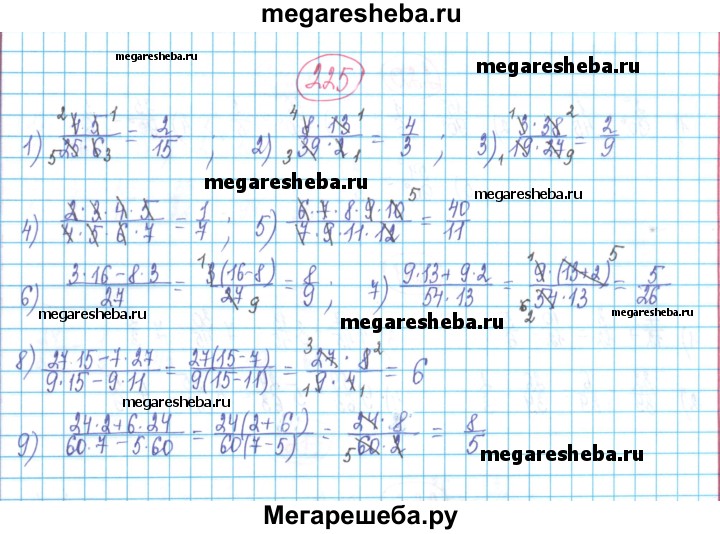 megaresheba.ru
megaresheba.ru 225 megaresheba.ru
1) 4·5/25·6 = 2/15 ; 2) 8·13/39·2 = 4/3 ; 3) 3·38/19·27 = 2/9
megaresheba.ru megaresheba.ru
4) 2·3·4·5/4·5·6·7 = 1/7 ; 5) 6·7·8·9·10/7·9·11·12 = 40/11
6) 3·16-8·3/27 = 3(16-8)/27 = 8/9 ; 7) 9·13+9·2/54·13 = 9·(13+2)/54·13 = 5/26
megaresheba.ru megaresheba.ru megaresheba.ru
8) 27·15-7·27/9·15-9·11 = 27(15-7)/9(15-11) = 27·8/9·4 = 6
megaresheba.ru
9) 24·2+6·24/60·7-5·60 = 24(2+6)/60(7-5) = 24·8/60·2 = 8/5
megaresheba.ru
Мегарешеба.ру